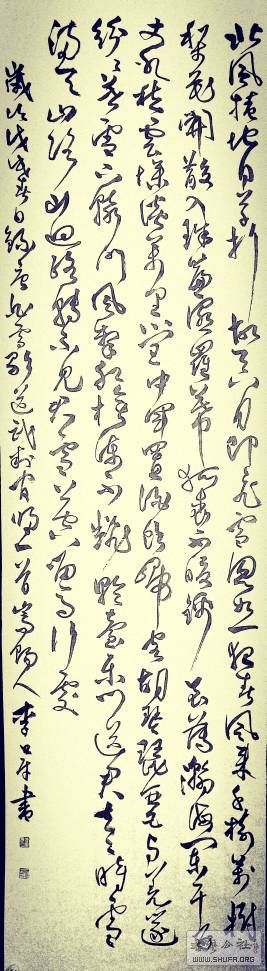 北風捲地白草折胡天八月即飛雪忽如一夜春風來千樹萬樹
梨花開散入珠簾濕羅幕狐裘不暖錦衾薄瀚海闌干百
丈冰愁雲慘淡萬里凝中軍置酒飲歸客胡琴琵琶與羌笛
紛紛暮雪下轅門風掣紅旗凍不翻輪臺東門送君去去時雪
滿天山路山迴路轉不見君雪上空留馬行處
歲次戊戌春日錄白雪歌送武判官歸一首嵩陽人李書
公社
WWW.SHUFA.ORG